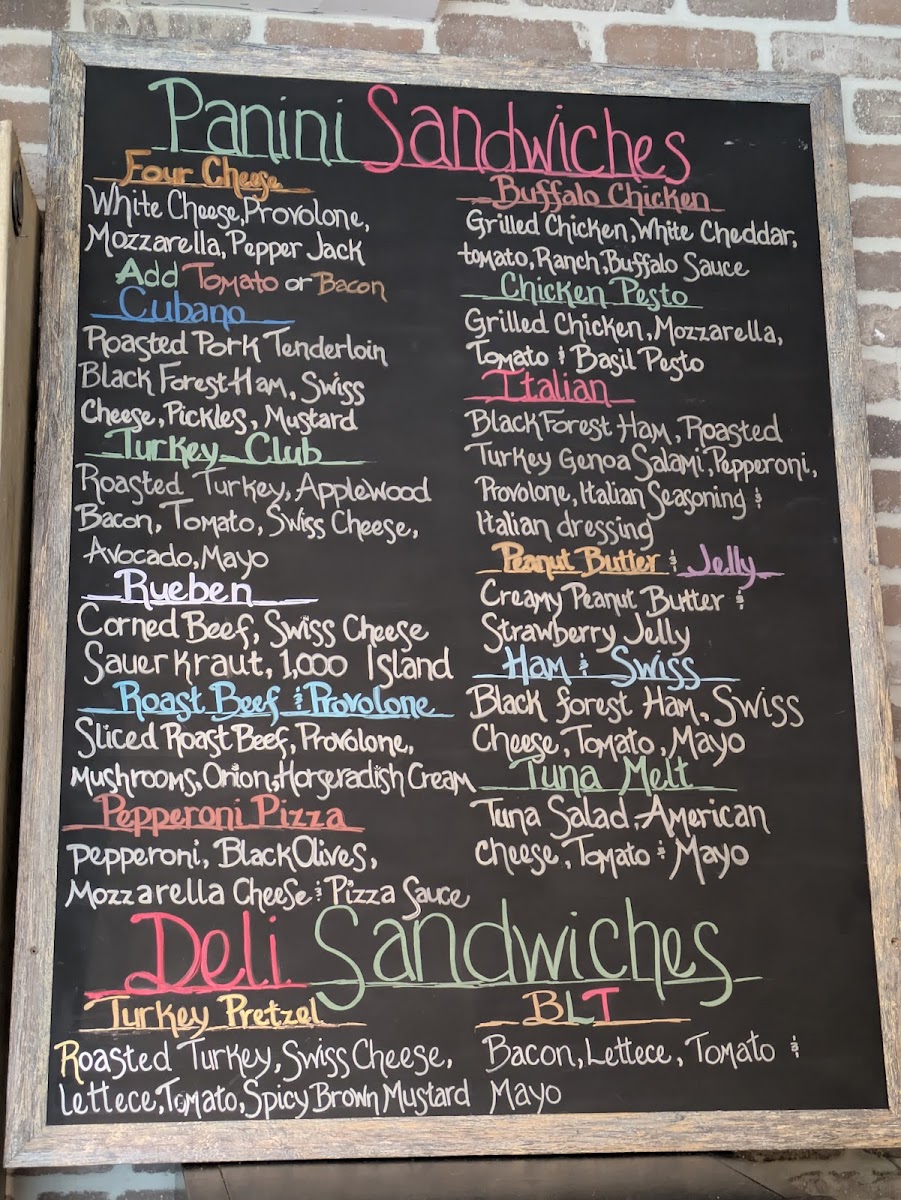 Panini Sandwiches
Four Cheese
White Cheese, Provolone,
Mozzarella, Pepper Jack
Add Tomato or Bacon
Cubano
Roasted Pork Tenderloin
Black Forest Ham, Swiss
Cheese, Pickles, Mustard
Turkey Club
Roasted Turkey, Applewood
Bacon, Tomato, Swiss Cheese,
Avocado, Mayo
Rueben
Corned Beef, Swiss Cheese
Sauerkraut, 1,000 Island
Roast Beef & Provolone
Sliced Roast Beef, Provolone,
Mushrooms, Onion, Horseradish Cream
Pepperoni Pizza
Pepperoni, Black Olives,
Mozzarella Cheese & Pizza Sauce
Buffalo Chicken
Grilled Chicken, White Cheddar,
tomato, Ranch, Buffalo Sauce
Chicken Pesto
Grilled Chicken, Mozzarella,
Tomato & Basil Pesto
Italian
Black Forest Ham, Roasted
Turkey Genoa Salami, Pepperoni,
Provolone, Italian Seasoning &
Italian dressing
Peanut Butter & Jelly
Creamy Peanut Butter &
Strawberry Jelly
Ham & Swiss
Black forest Ham, Swiss
Cheese, Tomato, Mayo
Tuna Melt
Tuna Salad, American
Cheese, Tomato & Mayo
Deli Sandwiches
Turkey Pretzel
Roasted Turkey, Swiss Cheese,
Lettece, Tomato, Spicy Brown Mustard
BLT
Bacon, Lettece, Tomato &
Mayo